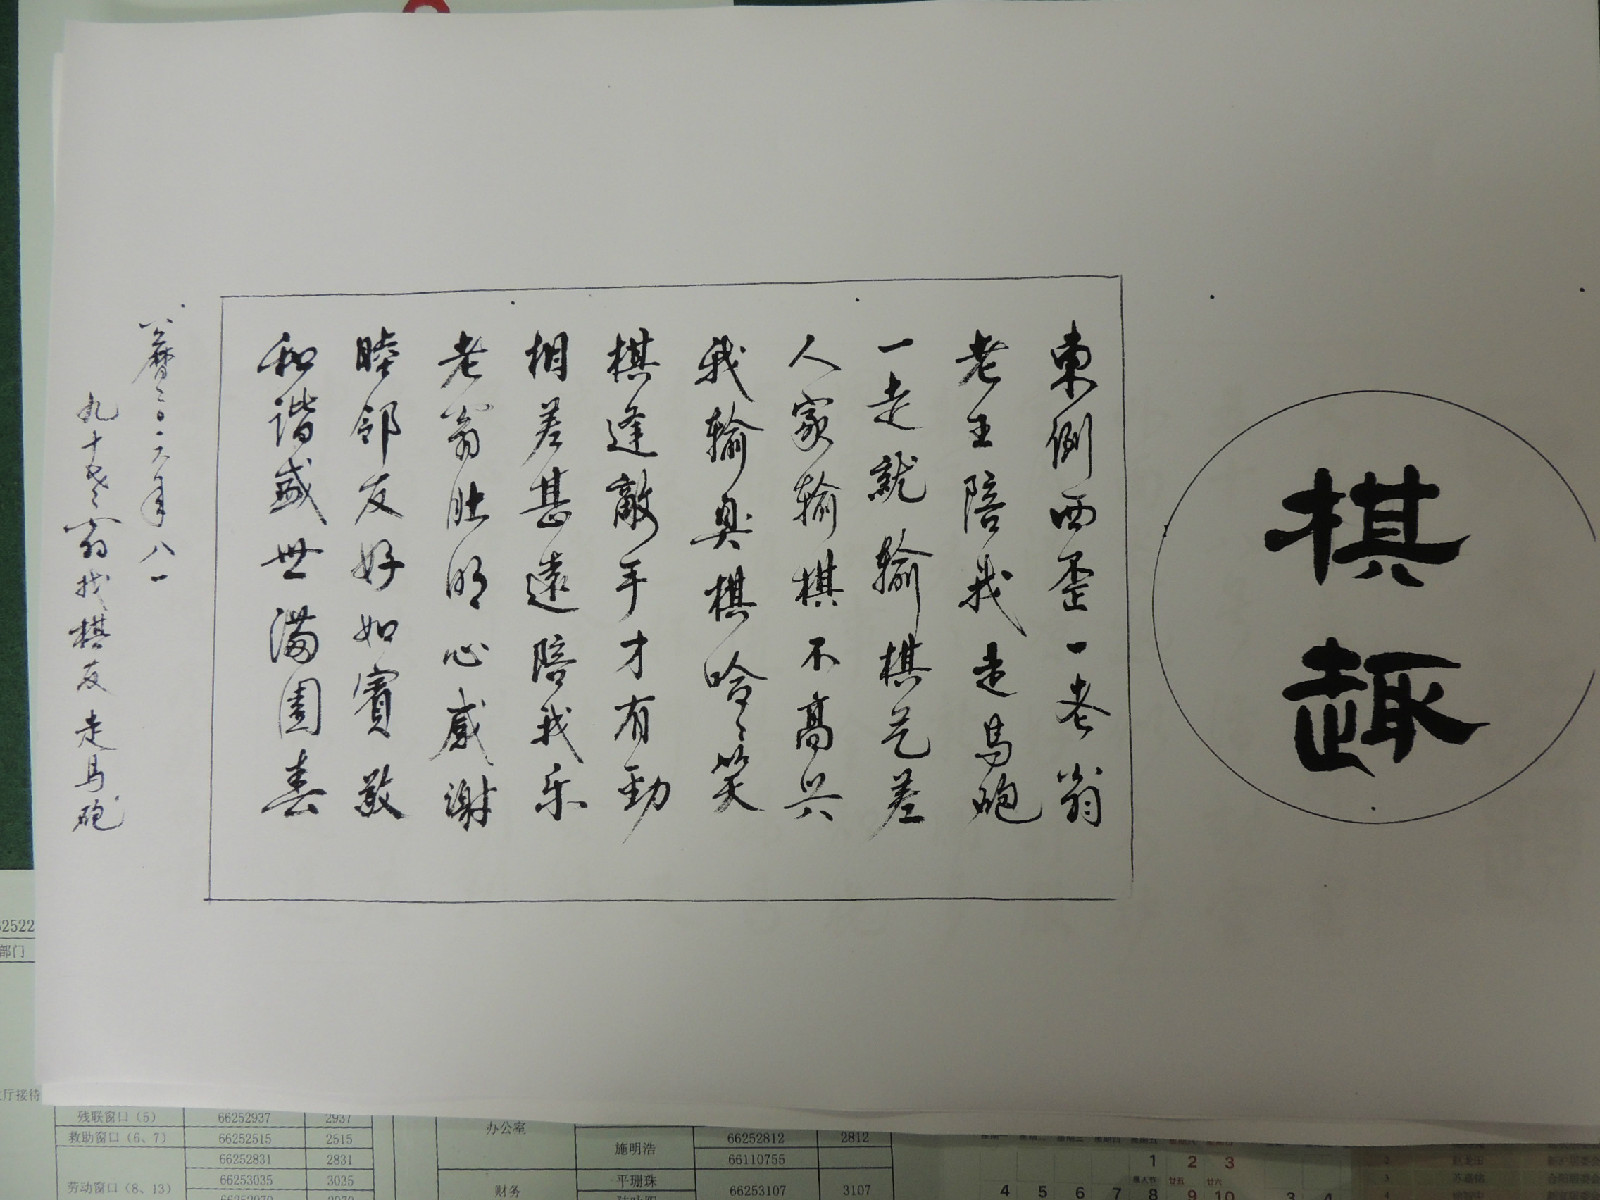 棋趣
東倒西歪一老翁
老王陪我走馬砲
一走就输棋艺差
人家输棋不高兴
我输臭棋哈哈笑
棋逢敵手才有劲
相差甚遠陪我乐
老翁肚明心感谢
睦邻友好如賓敬
和谐盛世满園春
八一
九十老翁找棋友走马砲
部门
残联窗口（5） 66252937 2937
救助窗口（6、7） 66252515 2515
66252831 2831
劳动窗口（8、13） 66253035 3035
办公室
施明浩 66252812 2812
66110755
财务 平珊珠 66253107 3107
1 2 3
4 5 6 7 8 9 10